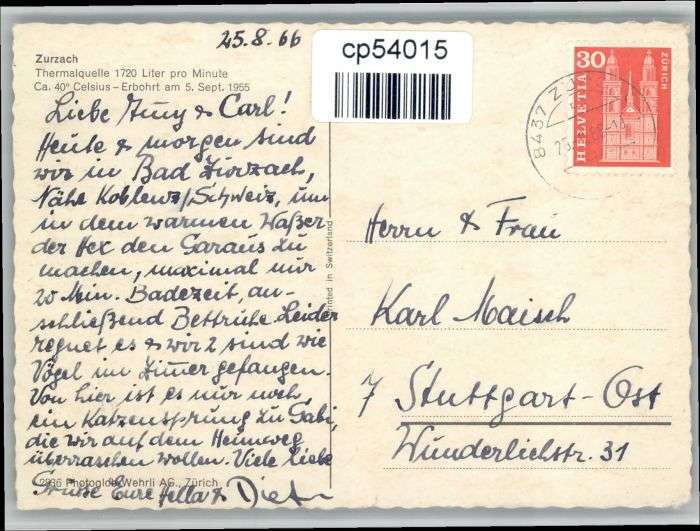 25.8.66
cp54015
Zurzach
Thermalquelle 1720 Liter pro Minute
Ca. 40° Celsius – Erbohrt am 5. Sept. 1955
Liebe & Carl!
Heute & morgen sind
wir in Bad Zurzach,
Nähe Koblenz/Schweiz, um
in dem warmen Waßer
der Hex den Garaus zu
machen, maximal nur
20 Min. Badezeit, an-
schließend Bettruhe. Leider
regnet es & wir 2 sind wie
Vögel im Zimmer gefangen.
Von hier ist es nur noch
ein Katzensprung zu Gabi,
die wir auf dem Heimweg
überraschen wollen. Viele liebe
Grüße Eure Hella & Dieter
2936 Photoglob-Wehrli AG., Zürich
Printed in Switzerland
30
HELVETIA
ZÜRICH
8437 ZURZACH
Herrn & Frau
Karl Maisch
7 Stuttgart-Ost
Wunderlichstr. 31